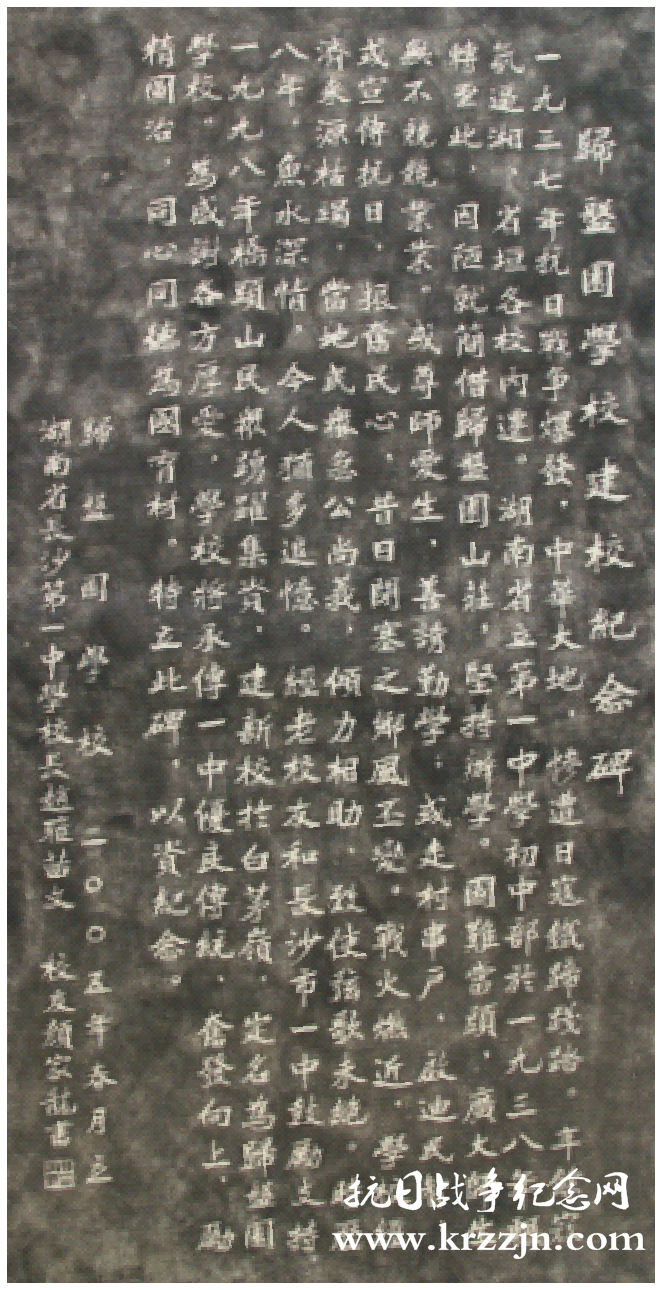 歸盤圍學校建校紀念碑
一九三七年抗日戰争爆發，中華大地，慘遭日寇鐵蹄踐踏。年
氛逼湖，省垣各校内遷。湖南省立第一中學初中部於一九三八
轉至此，因陋就簡借歸盤圍山莊，堅持辦學。國難當頭，廣大
無不兢兢業業。或尊師愛生，善誘勤學，或走村串户，啟迪民
或宣傳抗日，振奮民心，昔日閉塞之鄉風丕變。戰火燃近，學
濟來源枯竭，當地民衆急公尚義，傾力相助，致使弦歌未絶。
八年，魚水深情，令人猶多追憶。經老校友和長沙市一中鼓勵支持
一九九八年橋頭山民衆踴躍集資，建新校於白茅嶺，定名爲歸盤圍
學校。爲感謝各方厚愛，學校將承傳一中優良傳統，奮發向上，勵
精圖治，同心同德爲國育材。特立此碑，以資紀念。
歸盤圍學校 二〇〇五年春月立
湖南省長沙第一中學校長趙雄苗文 校友顔家龍書
抗日战争纪念网
www.krzzjn.com